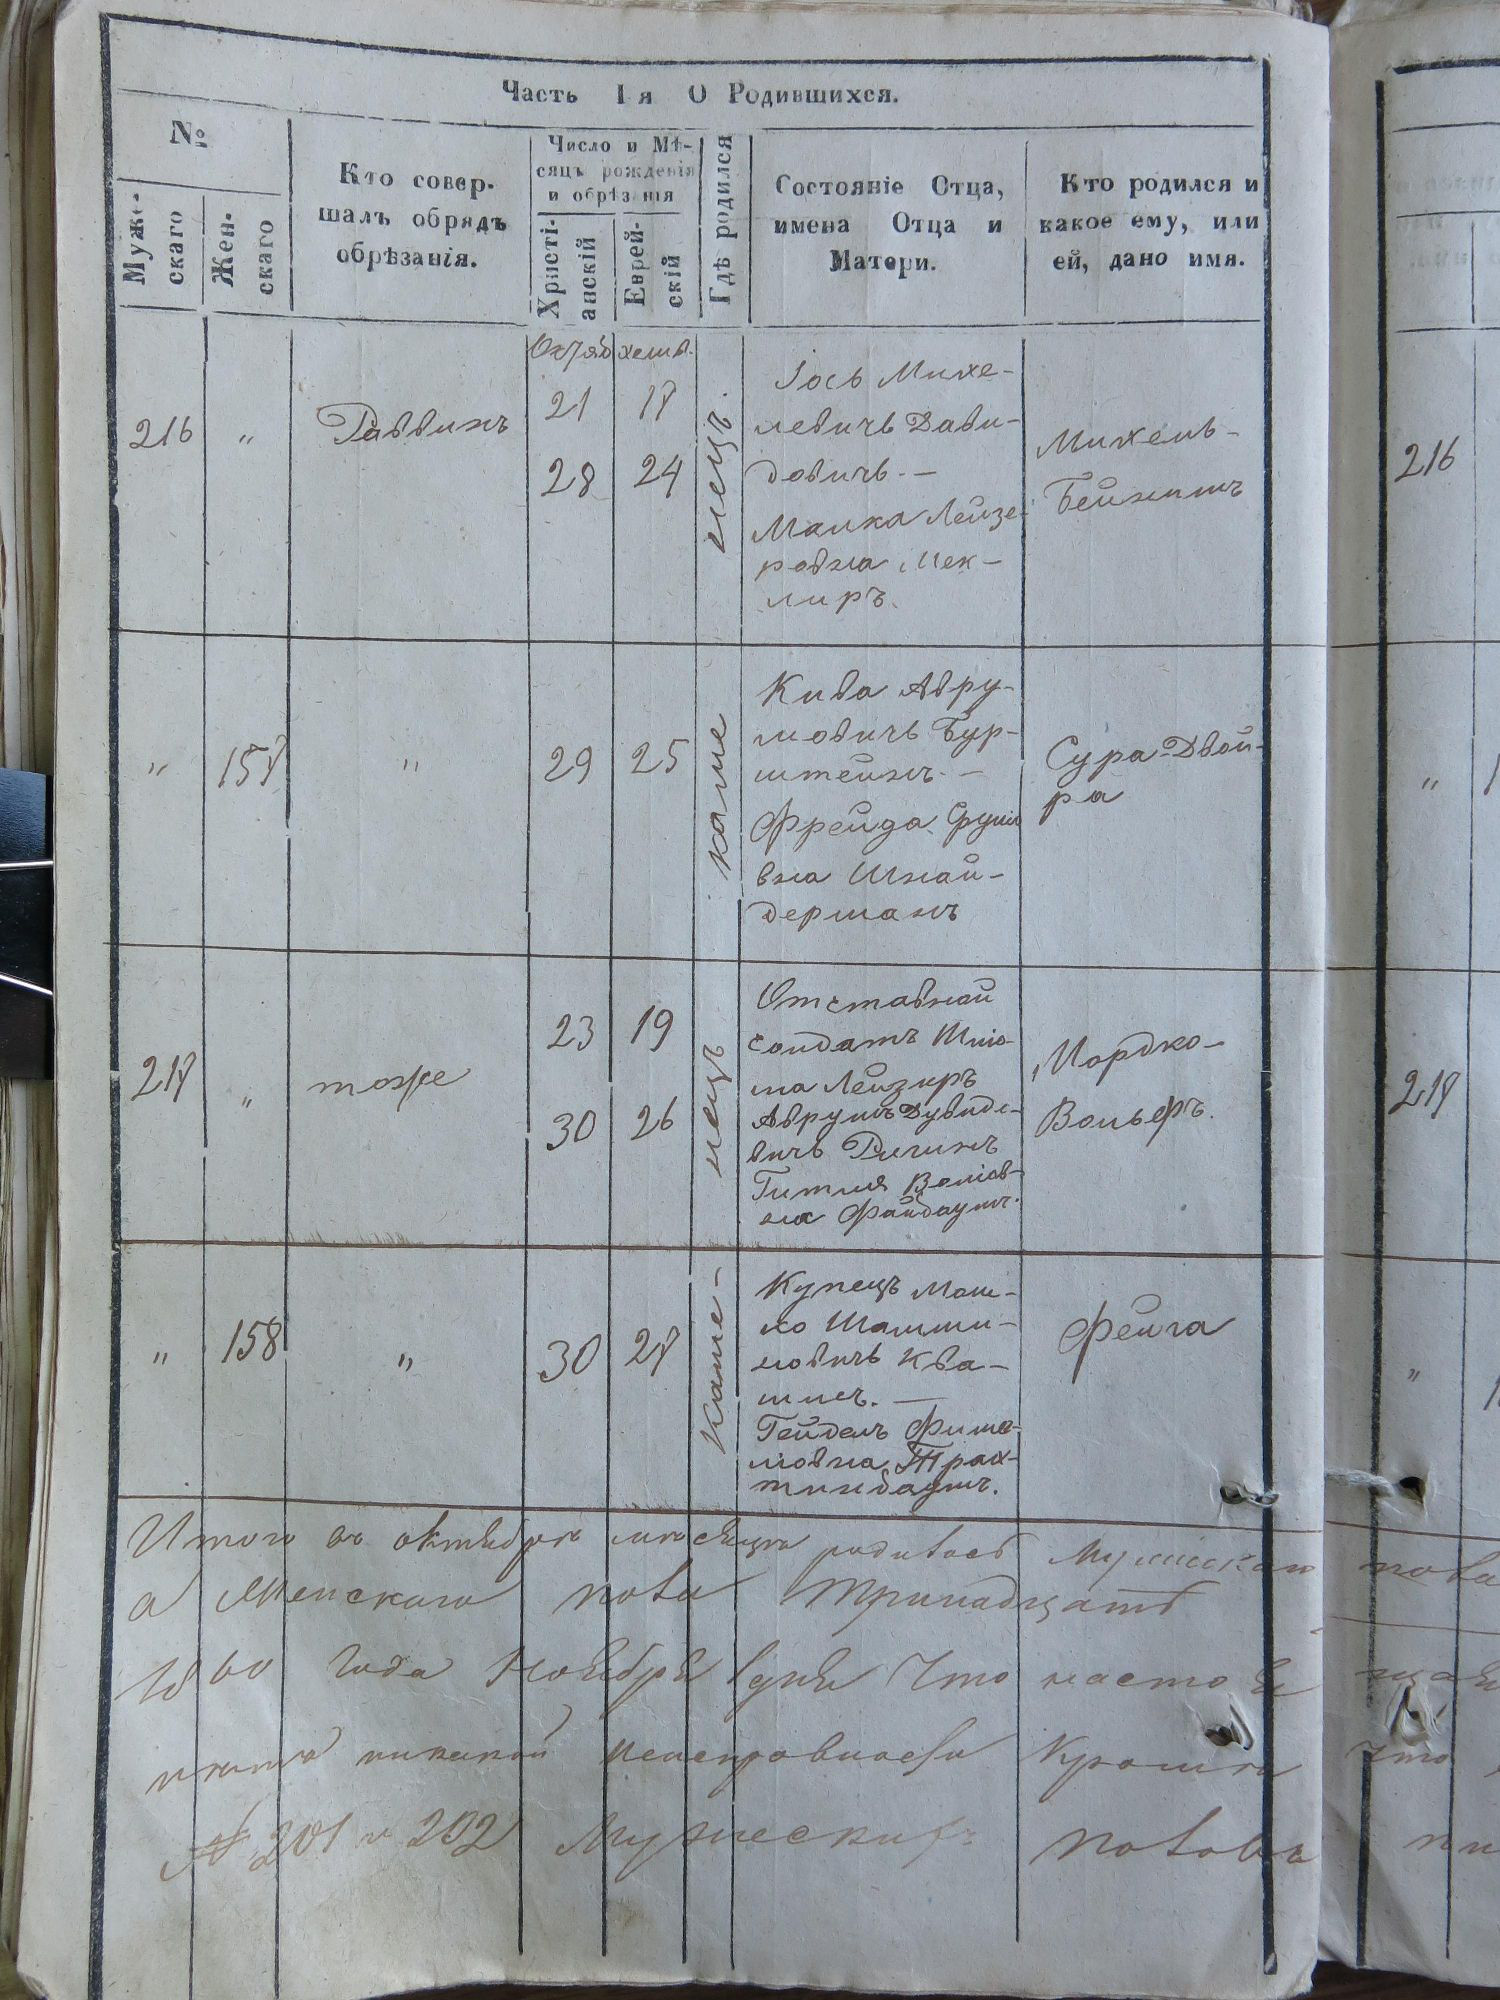 Часть I я О Родившихся.
№
Муже-
скаго
Жен-
скаго
Кто совер-
шалъ обрядъ
обрѣзанія.
Число и Мѣ-
сяцъ рожденія
и обрѣзанія
Христі-
анскій
Еврей-
скій
Гдѣ родился
Состояніе Отца,
имена Отца и
Матери.
Кто родился и
какое ему, или
ей, дано имя.
216 " Раввинъ
Октяб хешв.
21 17
28 24
Іось Михе-
левичь Дави-
довичь. —
Малка Лейзе-
ровна Мек-
лиръ.
Михель-
Бейнишъ
" 157 "
29 25
Каме
нецъ
Кива Авру-
мовичь Бур-
штейнъ. —
Фрейда Сруле
вна Шнай-
дерманъ
Сура-Двой-
ра
217 " тоже
23 19
30 26
Отставной
солдатъ Шлio-
ма Лейзиръ
Аврумъ Дувидо-
вичь
Гитля Волiов-
на Файбаумъ.
Мордко-
Вольфъ.
" 158 "
30 27
Каме-
нецъ
Купецъ Мош-
ко
новичь Ква-
Гейдель Фише-
ловна Трах-
тинбаумъ.
Фейга
Итого въ октябрѣ мѣсяцѣ родилось Мужескаго
а Женскаго пола Тринадцать
1860 года Ноября дня Что настоя
никакой неисправности Кромѣ
№ 201 и 202 Мужеский половъ
216
"
217
"